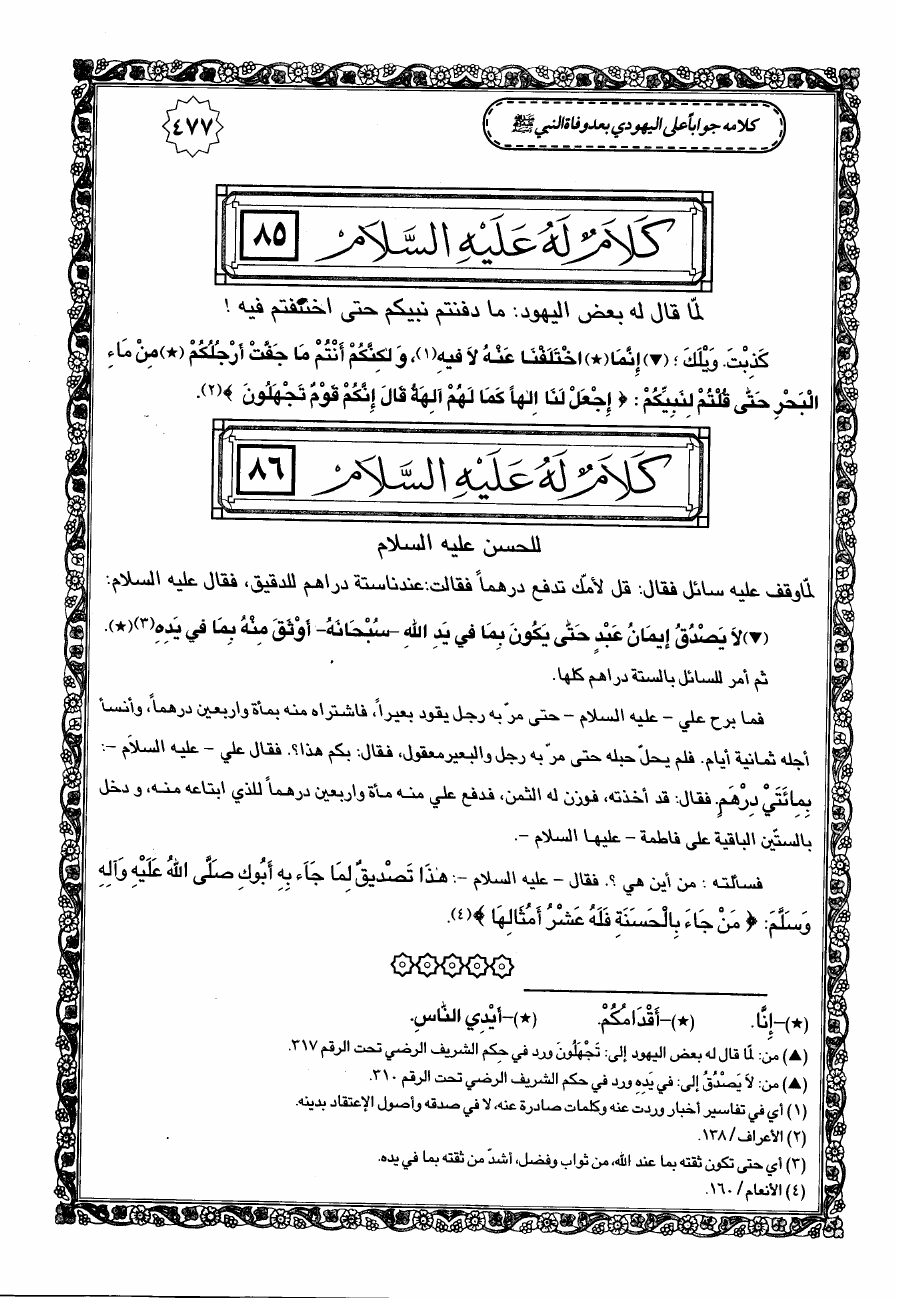 كلامه جواباً على اليهودي بعد وفاة النبي ﷺ
٤٧٧
كَلَامٌ لَهُ عَلَيْهِ السَّلَامُ
٨٥
لمّا قال له بعض اليهود: ما دفنتم نبيكم حتى اختلفتم فيه !
كَذِبْتَ. وَيْلَكَ ؛ (▼) إِنَّمَا(★) اخْتَلَفْنَا عَنْهُ لاَ فيهِ(١)، وَ لكِنَّكُمْ أَنْتُمْ مَا جَفَّتْ أَرْجُلُكُمْ (★) مِنْ مَاءِ
الْبَحْرِ حَتّٰى قُلْتُمْ لِنَبِيِّكُمْ : ﴿ إِجْعَلْ لَنَا إِلٰهاً كَمَا لَهُمْ آلِهَةٌ قَالَ إِنَّكُمْ قَوْمٌ تَجْهَلُونَ ﴾(٢).
كَلَامٌ لَهُ عَلَيْهِ السَّلَامُ
٨٦
للحسن عليه السلام
لمّاوقف عليه سائل فقال: قل لأمّك تدفع درهماً فقالت:عندناستة دراهم للدقيق، فقال عليه السلام:
(▼) لاَ يَصْدُقُ إيمَانُ عَبْدٍ حَتّٰى يَكُونَ بِمَا في يَدِ اللهِ –سُبْحَانَهُ– أَوْثَقَ مِنْهُ بِمَا في يَدِهِ(٣)(★).
ثم أمر للسائل بالستة دراهم كلها.
فما برح علي – عليه السلام – حتى مرّ به رجل يقود بعيراً، فاشتراه منه بمأة واربعين درهماً، وأنسأ
أجله ثمانية أيام. فلم يحلّ حبله حتى مرّ به رجل والبعيرمعقول، فقال: بكم هذا؟. فقال علي – عليه السلام –:
بِمِائَتَيْ دِرْهَمٍ. فقال: قد أخذته، فوزن له الثمن، فدفع علي منه مأة واربعين درهماً للذي ابتاعه منه، و دخل
بالستّين الباقية على فاطمة – عليها السلام –.
فسألته : من أين هي ؟. فقال – عليه السلام –: هٰذَا تَصْديقٌ لِمَا جَاءَ بِهِ أَبُوكِ صَلَّى اللهُ عَلَيْهِ وَآلِهِ
وَسَلَّمَ: ﴿ مَنْ جَاءَ بِالْحَسَنَةِ فَلَهُ عَشْرُ أَمْثَالِهَا ﴾(٤).
(★)–إِنَّا. (★)–أَقْدَامُكُمْ. (★)–أَيْدِي النَّاسِ.
(▲) من: لمّا قال له بعض اليهود إلى: تَجْهَلُونَ ورد في حكم الشريف الرضي تحت الرقم ٣١٧.
(▲) من: لاَ يَصْدُقُ إلى: في يَدِهِ ورد في حكم الشريف الرضي تحت الرقم ٣١٠.
(١) أي في تفاسير أخبار وردت عنه وكلمات صادرة عنه، لا في صدقه وأصول الإعتقاد بدينه.
(٢) الأعراف/ ١٣٨.
(٣) أي حتى تكون ثقته بما عند الله، من ثواب وفضل، أشدّ من ثقته بما في يده.
(٤) الأنعام/ ١٦٠.